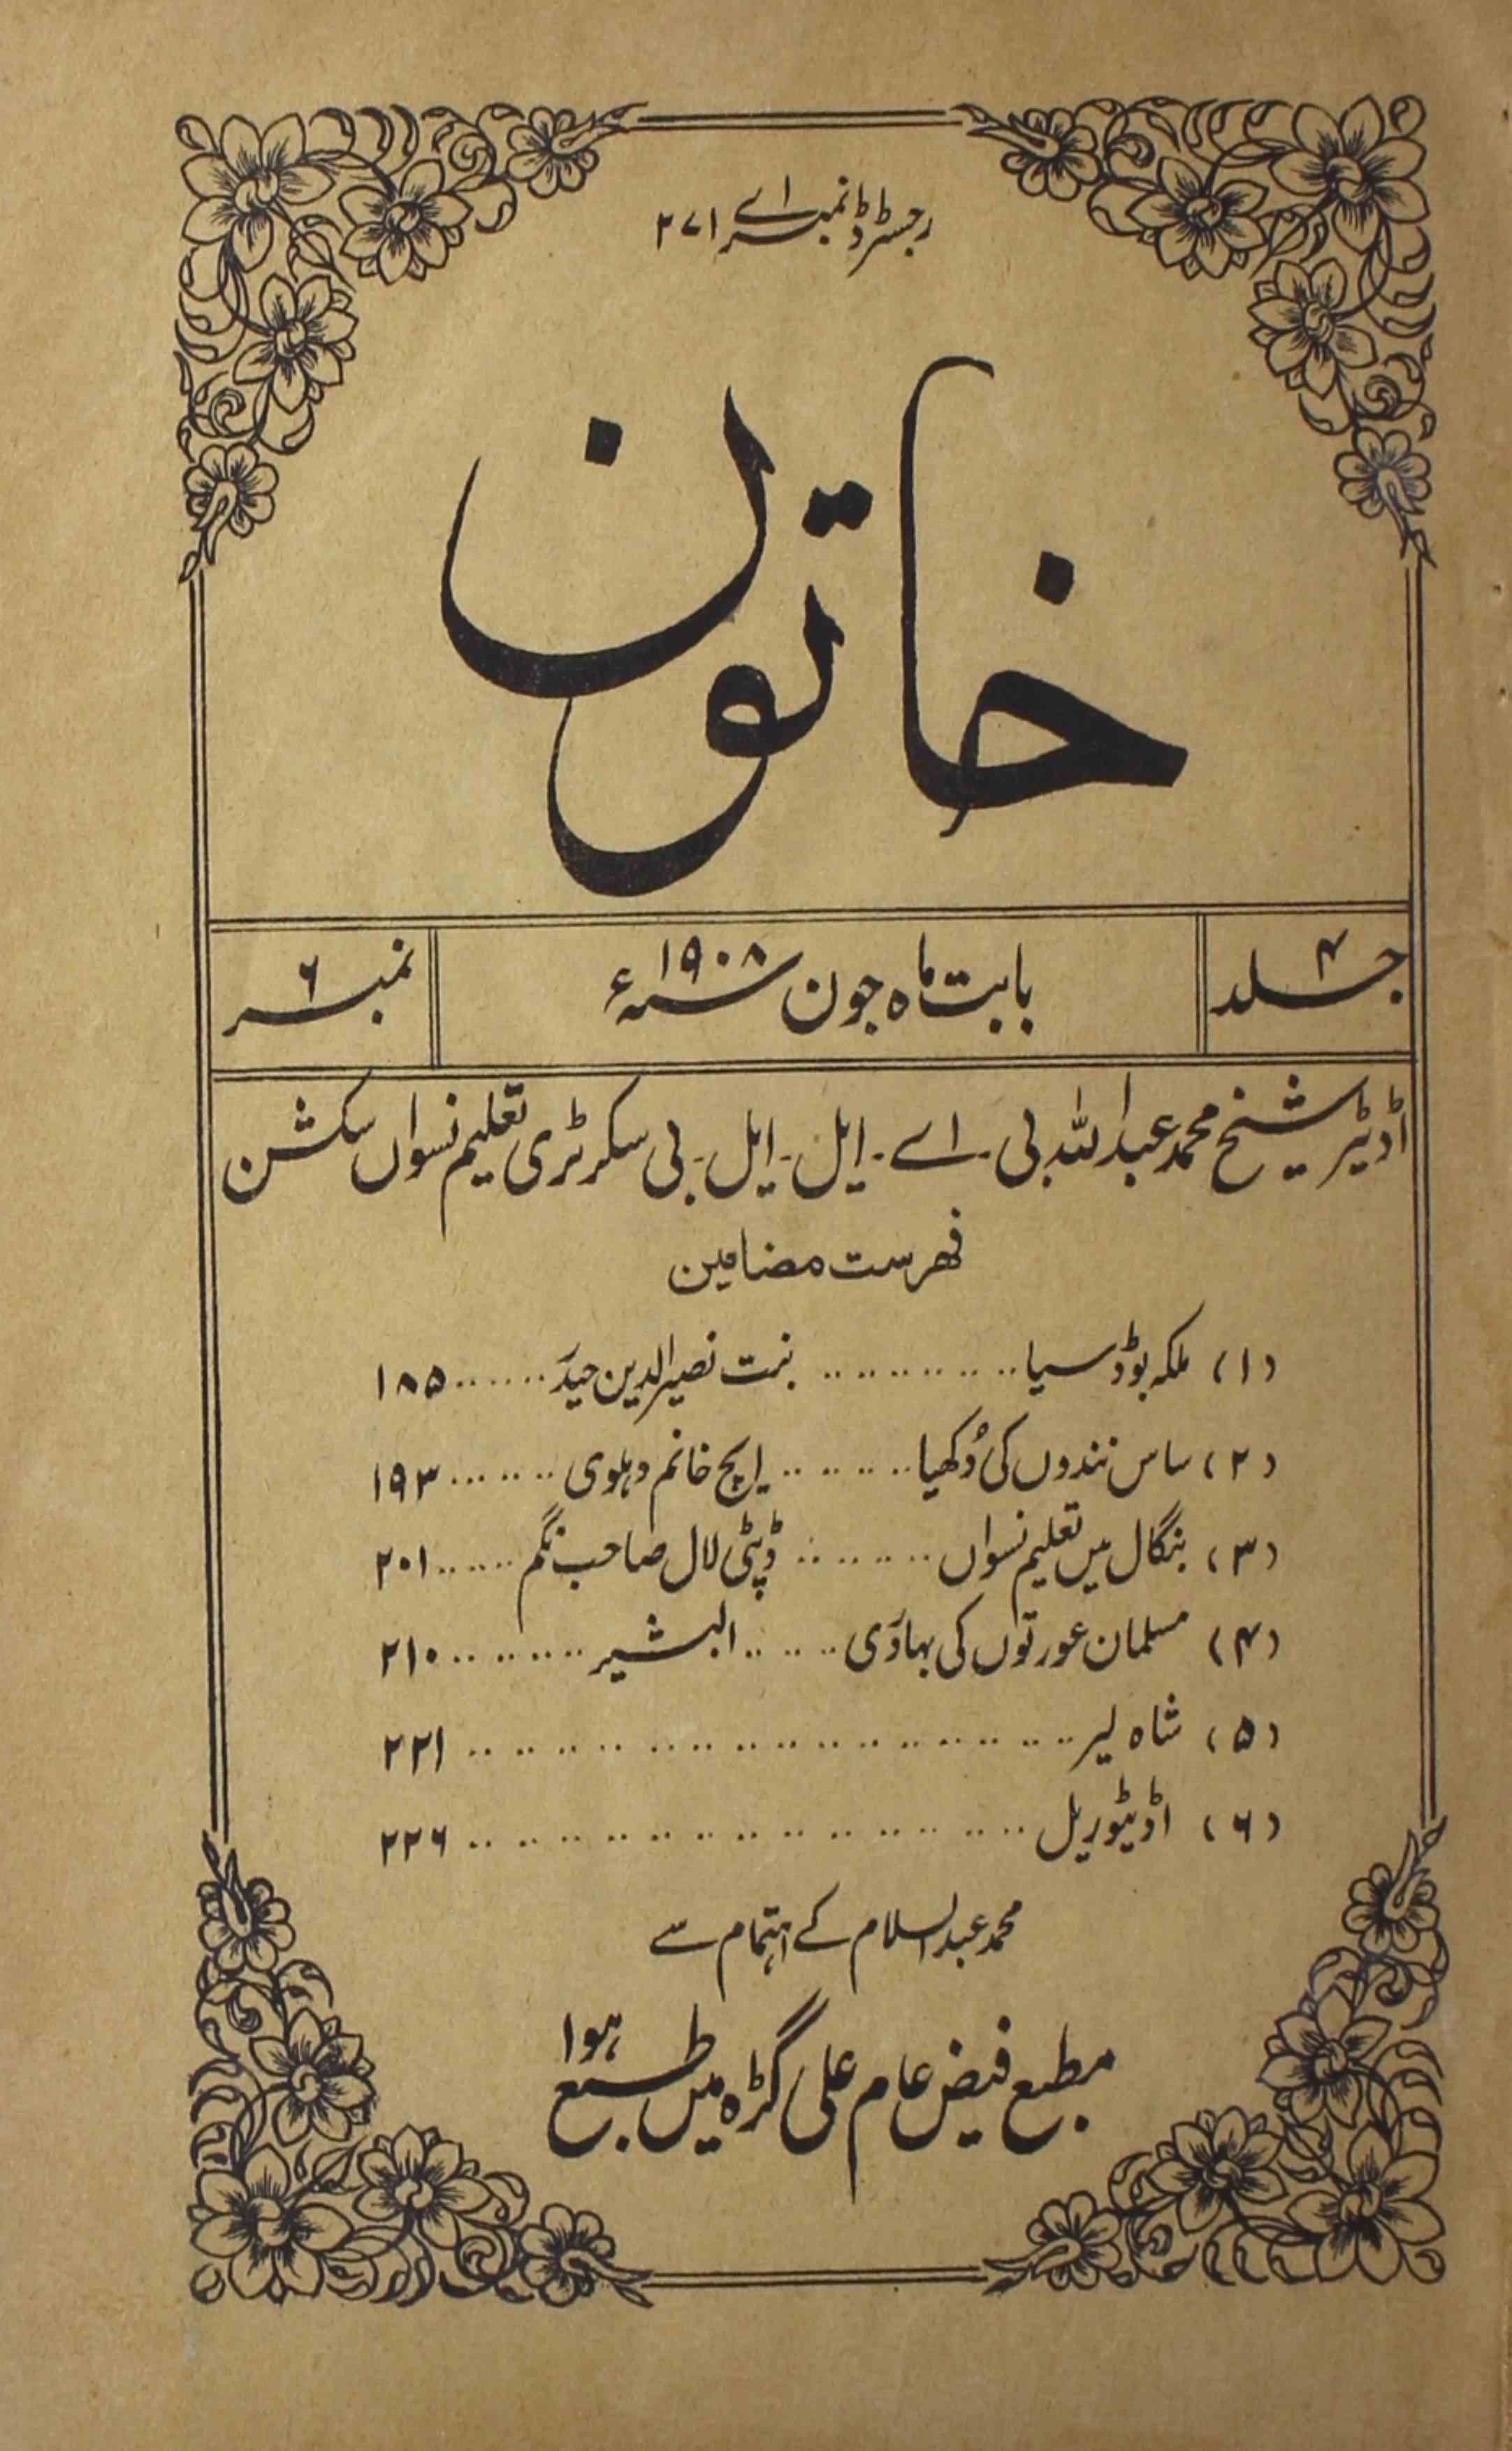 رجسٹرڈ نمبر اے ۲۷۱
خاتون
جلد ۴ بابت ماہ جون سنہ ۱۹۰۸ء نمبر ۶
اڈیٹر شیخ محمد عبداللہ بی ۔ اے ۔ ایل ۔ ایل ۔ بی سکرٹری تعلیم نسواں سکشن
فہرست مضامین
(۱) ملکہ بوڈسیا .. .. .. .. .. بنت نصیرالدین حیدر .. .. .. ۱۸۵
(۲) ساس نندوں کی دُکھیا .. .. .. .. ایچ خانم دہلوی .. .. .. ۱۹۳
(۳) بنگال میں تعلیم نسواں .. .. .. .. ڈپٹی لال صاحب نگم .. .. .. ۲۰۱
(۴) مسلمان عورتوں کی بہادری .. .. .. البشیر .. .. .. .. ۲۱۰
(۵) شاہ لیر .. .. .. .. .. .. .. .. .. .. .. .. .. ۲۲۱
(۶) اڈیٹوریل .. .. .. .. .. .. .. .. .. .. .. .. ۲۲۶
محمد عبدالسلام کے اہتمام سے
مطبع فیض عام علی گڑہ میں طبع ہوا